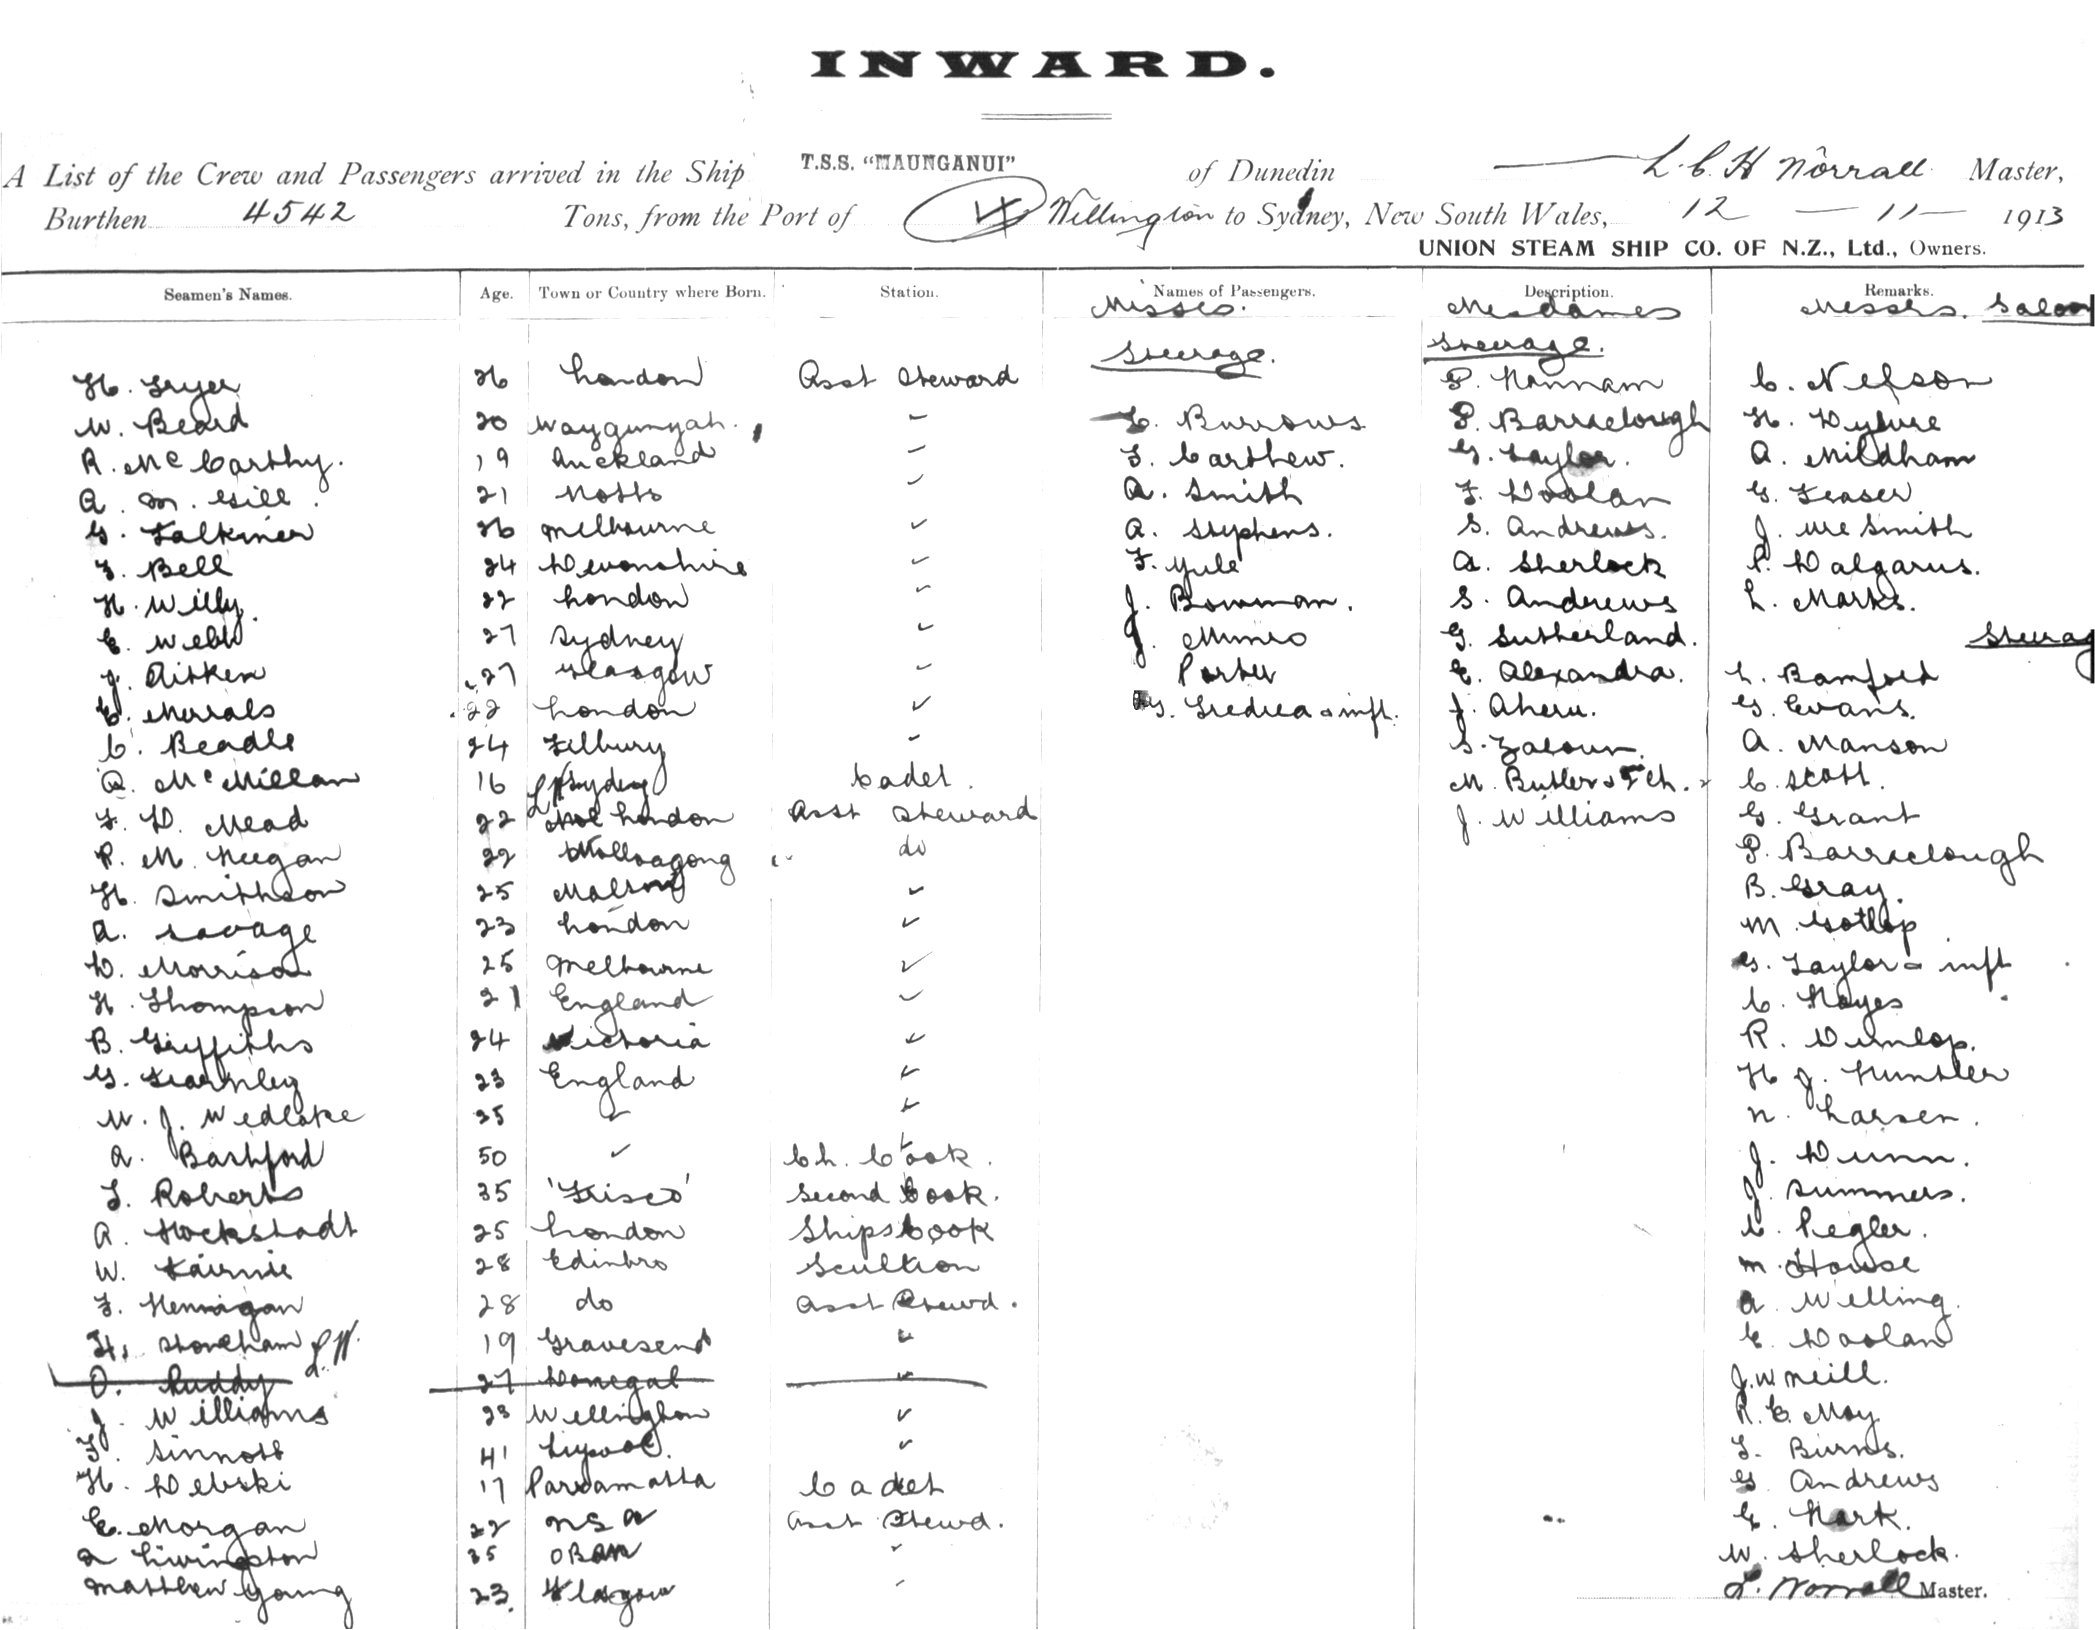 INWARD.
A List of the Crew and Passengers arrived in the Ship T.S.S. "MAUNGANUI" of Dunedin L. C. H Norrall Master,
Burthen 4542 Tons, from the Port of Wellington to Sydney, New South Wales, 12 — 11 — 1913
UNION STEAM SHIP CO. OF N.Z., Ltd., Owners.
Seamen's Names. Age. Town or Country where Born. Station. Names of Passengers. Description. Remarks.
Misses. Mesdames Messrs. Saloon
Steerage. Steerage.
H. Fryer 26 London Asst Steward P. Hannam C. Nelson
W. Beard 20 Waygunyah. " C. Burrows P. Barraclough H.
R. McCarthy. 19 Auckland " F. Carthew. G. Taylor. A. Mildham
A. M. Gill. 21 Notts " A. Smith F. Doolan G. Fraser
G. Falkiner 26 Melbourne " A. Stephens. S. Andrews. J. Mc Smith
F. Bell 24 Devonshire " F. Yule A. Sherlock P. Dalgarus.
H. Willy. 22 London " J. Bowman. S. Andrews L. Marks.
E. Webb 27 Sydney " J. Munro G. Sutherland. Steerag
J. Aitken 27 Glasgow " Porter E. Alexandra. L. Bamford
E. Merrals 22 London " G. & inft. J. Ahern. G. Evans.
C. Beadle 24 Tilbury " S. A. Manson
A. McMillan 16 Sydney Cadet. M. Butler & Ch. C. Scott.
F. D. Mead 22 London Asst Steward J. Williams G. Grant
P. M. Keegan 22 Wollongong " do P. Barraclough
H. Smithson 25 " B. Gray.
A. Savage 23 London " M. Gotlop
D. Morrison 25 Melbourne " G. Taylor & inft
H. Thompson 21 England " C. Hayes
B. Griffiths 24 Victoria " R. Dunlop.
G. Fearnley 23 England " H J. Huntler
W. J. Wedlake 35 " " N. Larsen.
A. Bashford 50 " Ch. Cook. J. Dunn.
T. Roberts 35 'Frisco' Second Cook. J. Summers.
A. Hockstadt 25 London Ships Cook C. Pegler.
W. Fairnie 28 Edinbro Scullion M. House
F. Hennigan 28 do Asst Stewd. A. Welling.
H. Stoneham 19 Gravesend " E. Doolan
O. Ruddy 27 Donegal " J. W Neill.
J. Williams 23 Wellington " R. E. May
F. Sinnott 41 L'pool. " T. Burns.
H. Debski 17 Parramatta Cadet G Andrews
E. Morgan 22 Asst Stewd. E. Hark.
A Livingston 35 OBAN " W. Sherlock.
Matthew Young 23. Glasgow " L. Norrall Master.